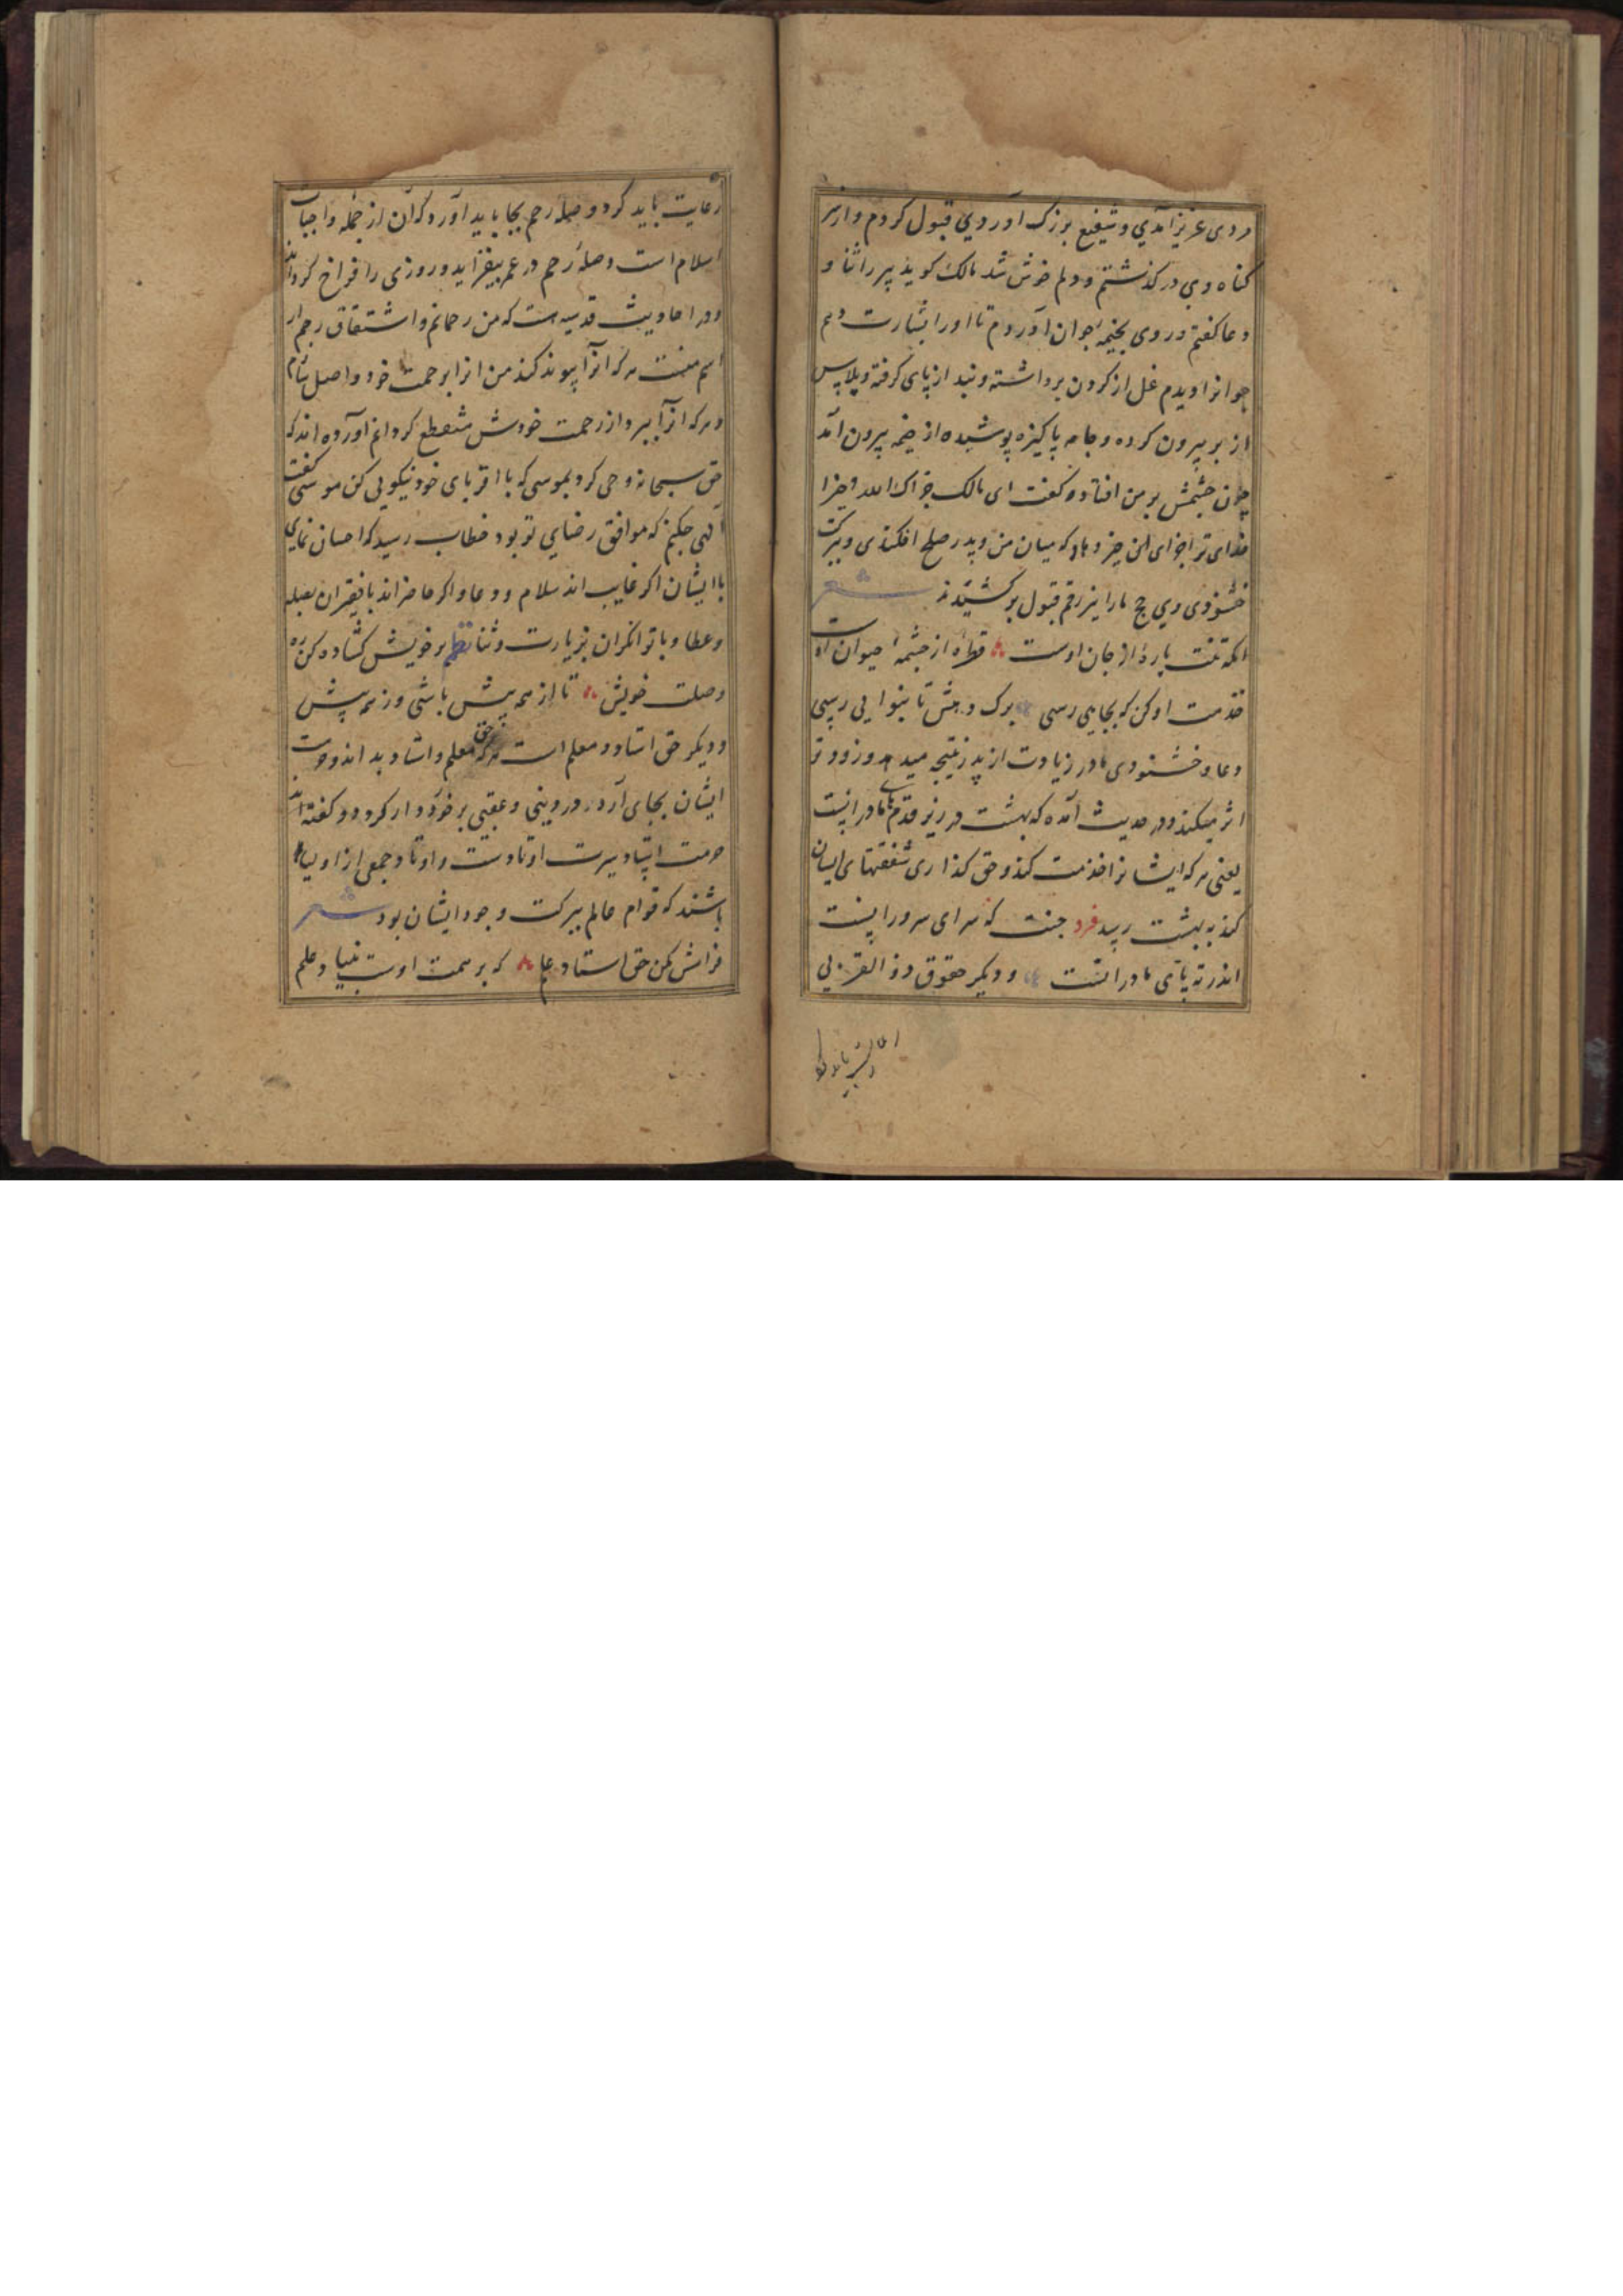 مردی عزیز آمدی و شفیع بزرک آوردی قبول کردم و از سر
کناه وی در کذشتم و دلم خوش شد مالک کوید پیر را ثنا و
دعا کفتم و روی بخیمهٔ جوان آوردم تا او را بشارت دهم
جوانرا دیدم غل از کردن برداشته و بند از پای کرفته و پلاس
از بر بیرون کرده و جامه پاکیزه پوشیده از خیمه بیرون آمد
چون چشمش بر من افتاد کفت ای مالک جزاک الله خیرا
خدای ترا جزای خیر دهاد که میان من و پدر صلح افکندی و ببرکت
خشنودی وی حج ما را نیز رقم قبول برکشیدند شعر
آنکه تنت پارهٔ از جان اوست قطرهٔ از چشمهٔ حیوان اوست
خدمت او کن که بجایی رسی برک دهش تا بنوایی رسی
دعا و خشنودی مادر زیادت از پدر نتیجه میدهد و زودتر
اثر میکند و در حدیث آمده که بهشت در زیر قدمهای مادرانست
یعنی هر که ایشانرا خدمت کند و حق کذاری شفقتهای ایشان
کند به بهشت رسد فرد جنت که سرای سرورانست
اندر ته پای مادرانست و دیکر حقوق ذو القربی
رعایت باید کرد و صله رحم بجا باید آورد که آن از جمله واجبات
اسلام است و صلهٔ رحم در عمر بیفزاید و روزی را فراخ کرداند
و در احادیث قدسیه است که من رحمانم و اشتقاق رحم از
اسم منست هر که آنرا پیوند کند من او را برحمت خود واصل سازم
و هر که آنرا ببرد از رحمت خودش منقطع کردانم آورده اند که
حق سبحانه وحی کرد بموسی که با اقربای خود نیکویی کن موسی کفت
الهی چکنم که موافق رضای تو بود خطاب رسید که احسان نمای
با ایشان اکر غایب اند سلام و دعا و اکر حاضراند با فقیران بصله
و عطا و با توانکران بزیارت و ثنا نظم بر خویش کشاده کن ره
وصلت خویش تا از همه بیش باشی وز همه پیش
و دیکر حق استاد و معلم است هر که حق معلم و استاد بداند و حرمت
ایشان بجای آرد در دینی و عقبی برخوردار کردد و کفته اند
حرمت استاد سیرت اوتادست و اوتاد جمعی از اولیا
باشند که قوام عالم ببرکت وجود ایشان بود شعر
فرامش مکن حق استاد علم که بر همت اوست بنیاد علم
رعایت باید کرد